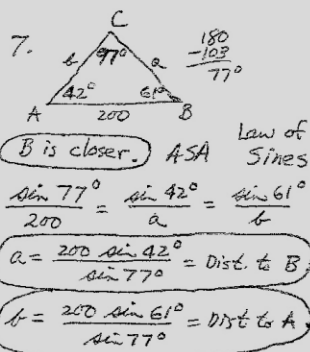 7.
C
180
-103
77°
b 77° a
42° 61°
A 200 B
B is closer. ASA Law of Sines
sin 77°/200 = sin 42°/a = sin 61°/b
a = 200 sin 42°/sin 77° = Dist. to B.
b = 200 sin 61°/sin 77° = Dist to A.